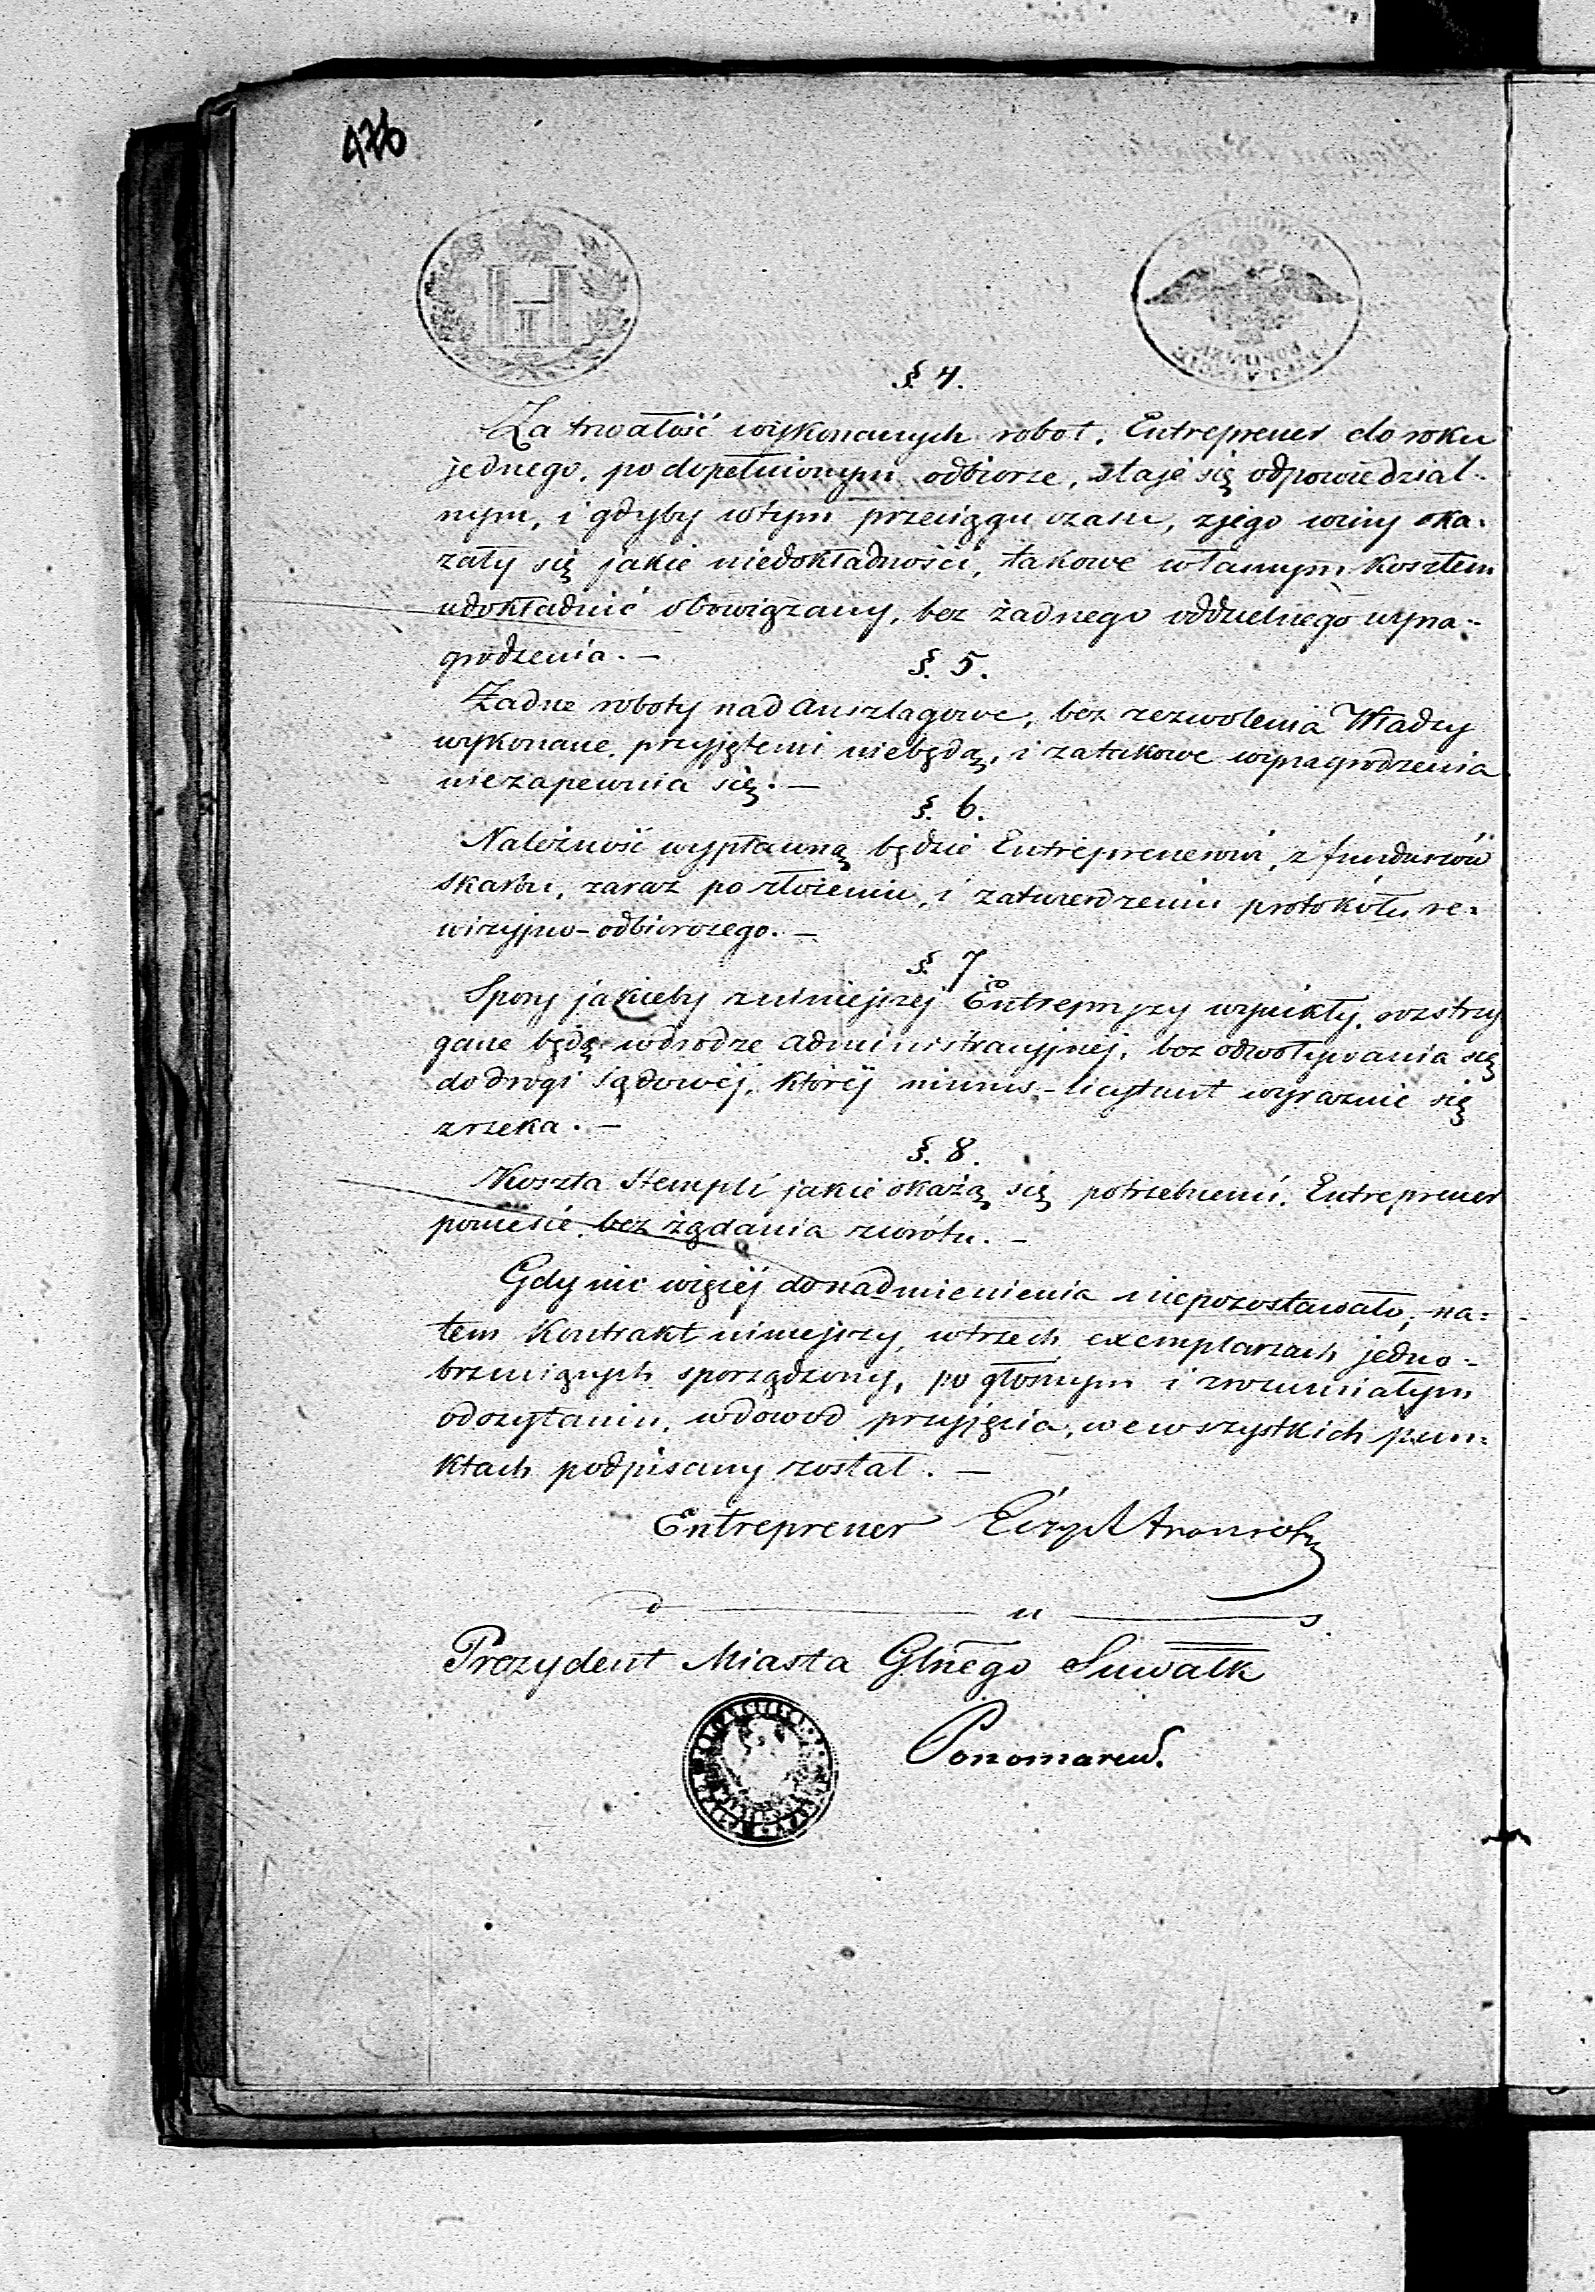 426
§. 4.
Za trwałość wykonanych robot, Entreprener do roku
jednego, po dopełnionym odbiorze, staje się odpowiedzial-
nym, i gdyby wtym przeciągu czasu, zjego winy oka-
zały się jakie niedokładności, takowe własnym kosztem
udokładnić obowiązany, bez żadnego oddzielnego wyna-
grodzenia. —
§. 5.
Żadne roboty nad Anszlagowe, bez zezwolenia Władzy
wykonane, przyjętemi niebędą, i zatakowe wynagrodzenia
niezapewnia się. —
§. 6.
Należność wypłacuną będzie Entreprenerowi, z funduszów
skarbu, zaraz po złożeniu, i zatwierdzeniu protokółu re-
wizyjno-odbiorczego. —
§. 7.
Spory jakieby zniniejszej Entrepryzy wynikły, rozstrzy
gane będą wdrodze administracyjnej, bez odwoływania się
do drogi sądowéj, któréj minus-licytant wyraznie się
zrzeka. —
§. 8.
Koszta Stempli jakie okażą się potrzebnemi, Entreprener
poniesie, bez żądania zwrótu. —
Gdy nic więcéj do nadmienienia niepozostawało, na-
tem Kontrakt niniejszy, wtrzech exemplarzach jedno-
brzmiących sporządzony, po głośnym i zrozumiałym
odczytaniu, wdowod przyjęcia, we wszystkich pun-
ktach podpisany został. —
Entreprener
d u s.
Prezydent Miasta Głnego Suwałk
Ponomarew.